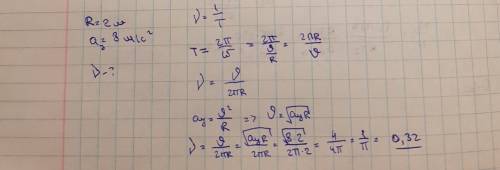 R=2м
a_y=8 м/с²
ν-?
ν=1/T
T=2π/ω=2π/(ϑ/R)=2πR/ϑ
ν=ϑ/2πR
a_y=ϑ²/R => ϑ=√(a_yR)
ν=ϑ/2πR=√(a_yR)/2πR=√(8·2)/2π·2=4/4π=1/π=0,32